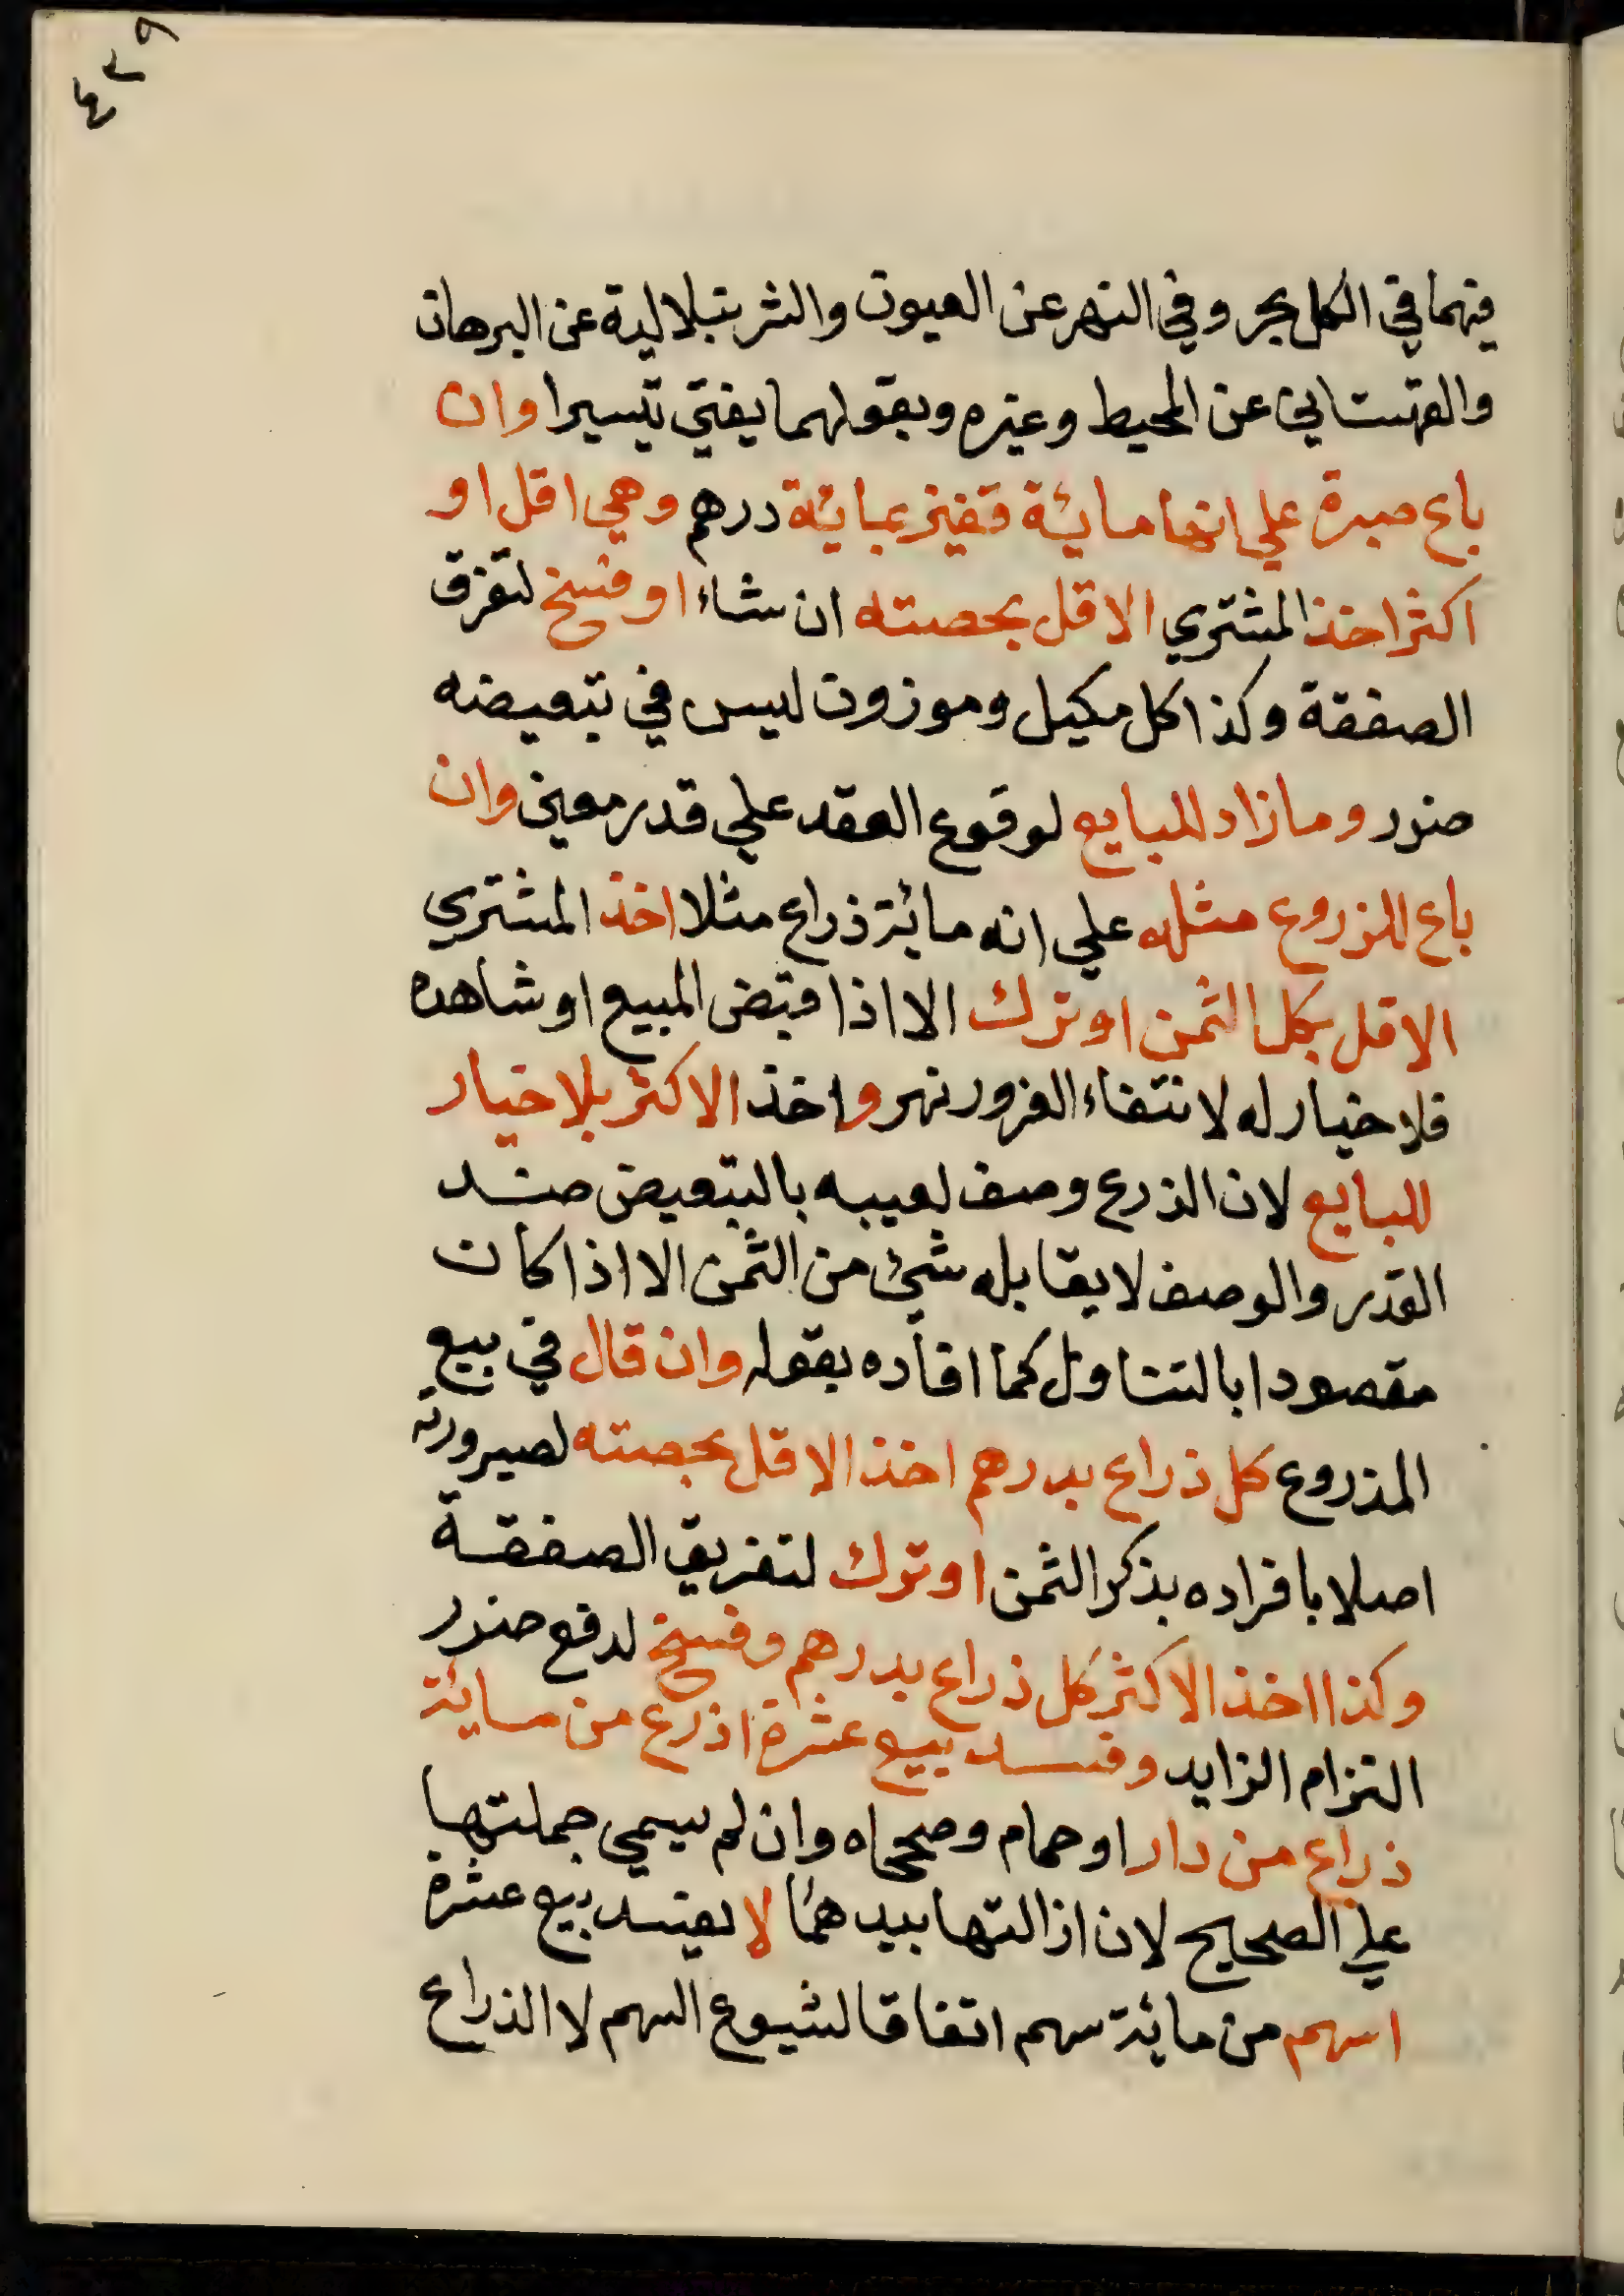 ٤٣٩
فيهما في الكل بحر وفي النهر عن العيون والشرنبلالية عن البرهان
والقهستاني عن المحيط وغيره وبقولهما يفتي تيسيرا وان
باع صبرة علي انها مائة قفيز بمائة درهم وهي اقل او
اكثر اخذ المشتري الاقل بحصته ان شاء او فسخ لتفرق
الصفقة وكذا كل مكيل وموزون ليس في تبعيضه
ضرر وما زاد للبايع لوقوع العقد علي قدر معين وان
باع المزروع مثله علي انه مائة ذراع مثلا اخذ المشتري
الاقل بكل الثمن او ترك الا اذا قبض المبيع او شاهده
فلا خيار له لانتفاء الغرور نهر واخذ الاكثر بلا خيار
للبايع لان الذرع وصف لعيبه بالتبعيض ضد
القدر والوصف لا يقابله شيء من الثمن الا اذا كان
مقصودا بالتناول كما افاده بقوله وان قال في بيع
المذروع كل ذراع بدرهم اخذ الاقل بحصته لصيرورته
اصلا بافراده بذكر الثمن او ترك لتفريق الصفقة
وكذا اخذ الاكثر كل ذراع بدرهم وفسخ لدفع ضرر
التزام الزايد وفسد بيع عشرة اذرع من مائة
ذراع من دار او حمام وصححاه وان لم يسمي جملتها
علي الصحيح لان ازالتها بيدهما لا يفسد بيع عشرة
اسهم من مائة سهم اتفاقا لشيوع السهم لا الذراع